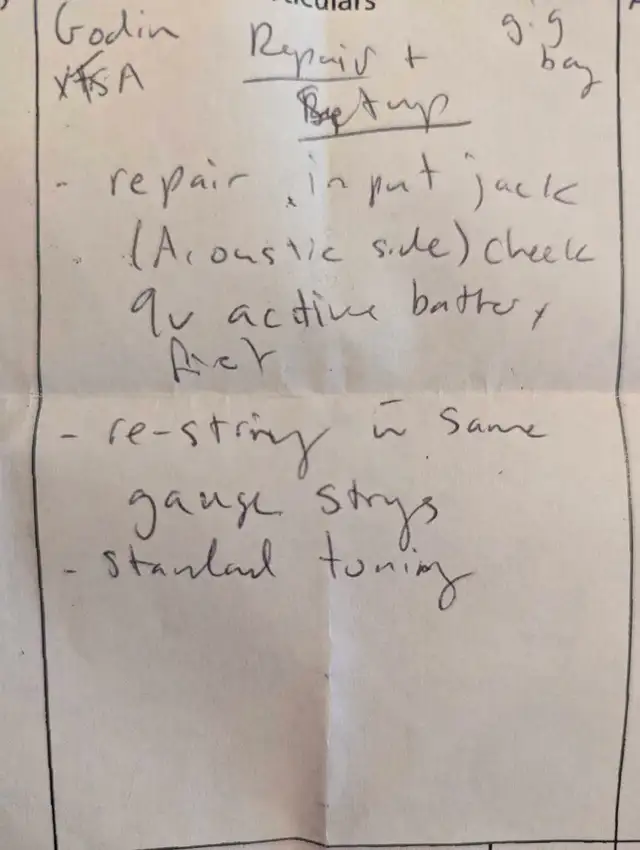 Godin
xtSA
gig
bag
Repairs +
Setup
- repair input jack
(Acoustic side) check
9v active battery
first
- re-string w same
gauge strings
- standard tuning